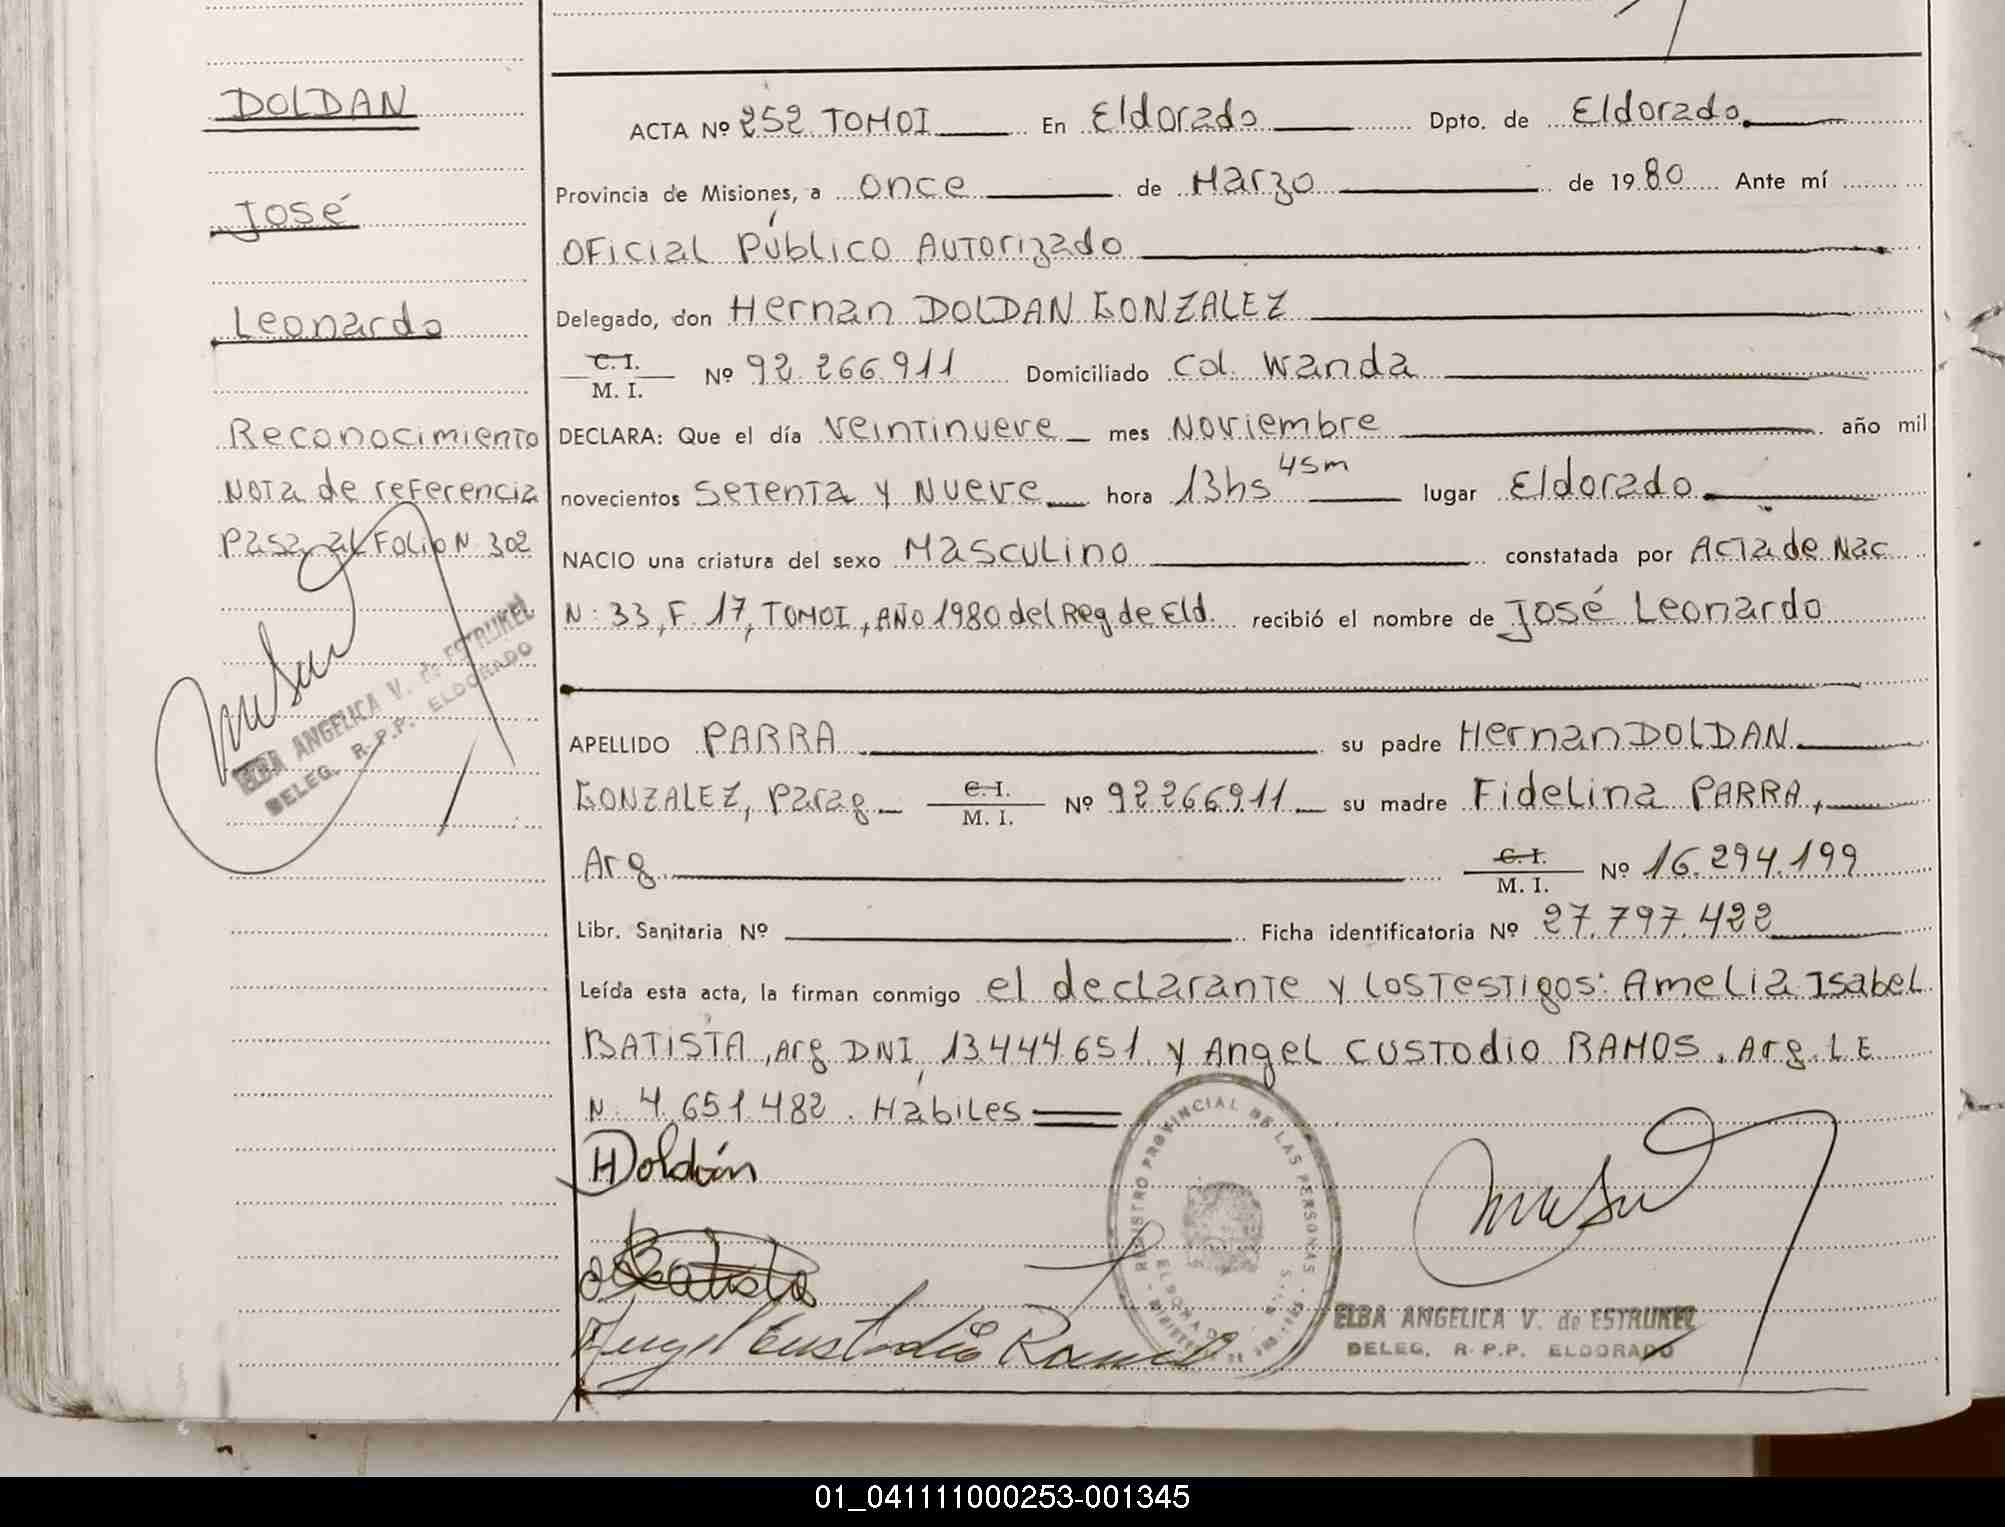 DOLDAN
José
Leonardo
Reconocimiento
Nota de referencia
Pasa al Folio N 302
ELBA ANGELICA V. de ESTRUKEL
DELEG. R.P.P. ELDORADO
ACTA Nº 252 TOMO I En Eldorado Dpto. de Eldorado
Provincia de Misiones, a once de Marzo de 1980 Ante mí
Oficial Público Autorizado
Delegado, don Hernan DOLDAN GONZALEZ
C.I. / M.I. Nº 92.266.911 Domiciliado Col. Wanda
DECLARA: Que el día veintinueve mes Noviembre año mil
novecientos setenta y nueve hora 13hs 45m lugar Eldorado
NACIO una criatura del sexo Masculino constatada por Acta de Nac
N: 33, F. 17, TOMO I, AÑO 1980 del Reg de Eld. recibió el nombre de José Leonardo
APELLIDO PARRA su padre Hernan DOLDAN
GONZALEZ, Parag C.I. / M.I. Nº 92.266.911 su madre Fidelina PARRA,
Arg C.I. / M.I. Nº 16.294.199
Libr. Sanitaria Nº Ficha identificatoria Nº 27.797.422
Leída esta acta, la firman conmigo el declarante y los testigos: Amelia Isabel
BATISTA, Arg DNI, 13.444.651 y Angel Custodio RAMOS, Arg. L E
N: 4.651.482. Hábiles
HDoldán
Batista
Angel Custodio Ramos
REGISTRO PROVINCIAL DE LAS PERSONAS
ELDORADO
ELBA ANGELICA V. de ESTRUKEL
DELEG. R.P.P. ELDORADO
01_041111000253-001345